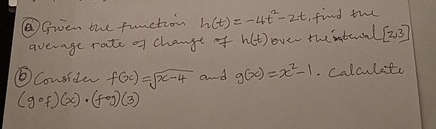 ⓐ Given the function h(t) = -4t² - 2t, find the
average rate of change of h(t) over the interval [2,3]
ⓑ Consider f(x) = √x-4 and g(x) = x² - 1. Calculate
(g∘f)(x) · (f∘g)(3)